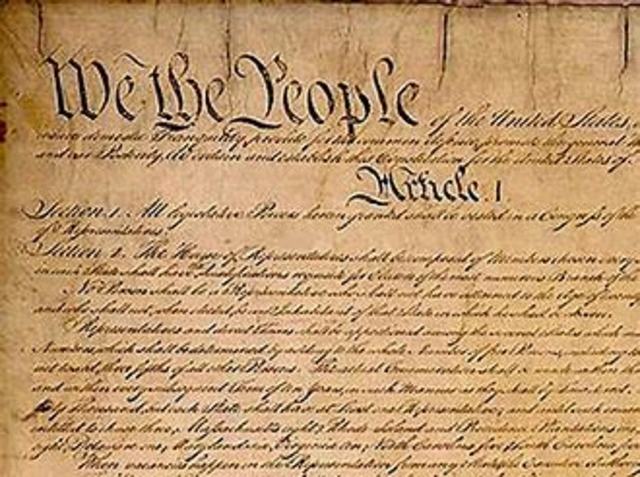 We the People of the United States,
insure domestic Tranquility, provide for the common defence, promote the general
and our Posterity, do ordain and establish this Constitution for the United States of
Article. I.
Section. 1. All legislative Powers herein granted shall be vested in a Congress of the
of Representatives.
Section. 2. The House of Representatives shall be composed of Members chosen every
in each State shall have Qualifications requisite for Electors of the most numerous Branch of the
No Person shall be a Representative who shall not have attained to the Age of twenty
and who shall not, when elected, be an Inhabitant of that State in which he shall be chosen.
Representatives and direct Taxes shall be apportioned among the several States which
Numbers, which shall be determined by adding to the whole Number of free Persons, including
not taxed, three fifths of all other Persons. The actual Enumeration shall be made within
and within every subsequent Term of ten Years, in such Manner as they shall by Law direct.
thirty Thousand, but each State shall have at Least one Representative; and until such
entitled to chuse three, Massachusetts eight, Rhode Island and Providence Plantations one,
eight, Delaware one, Maryland six, Virginia ten, North Carolina five, South Carolina five
When vacancies happen in the Representation from any State, the Executive Authority